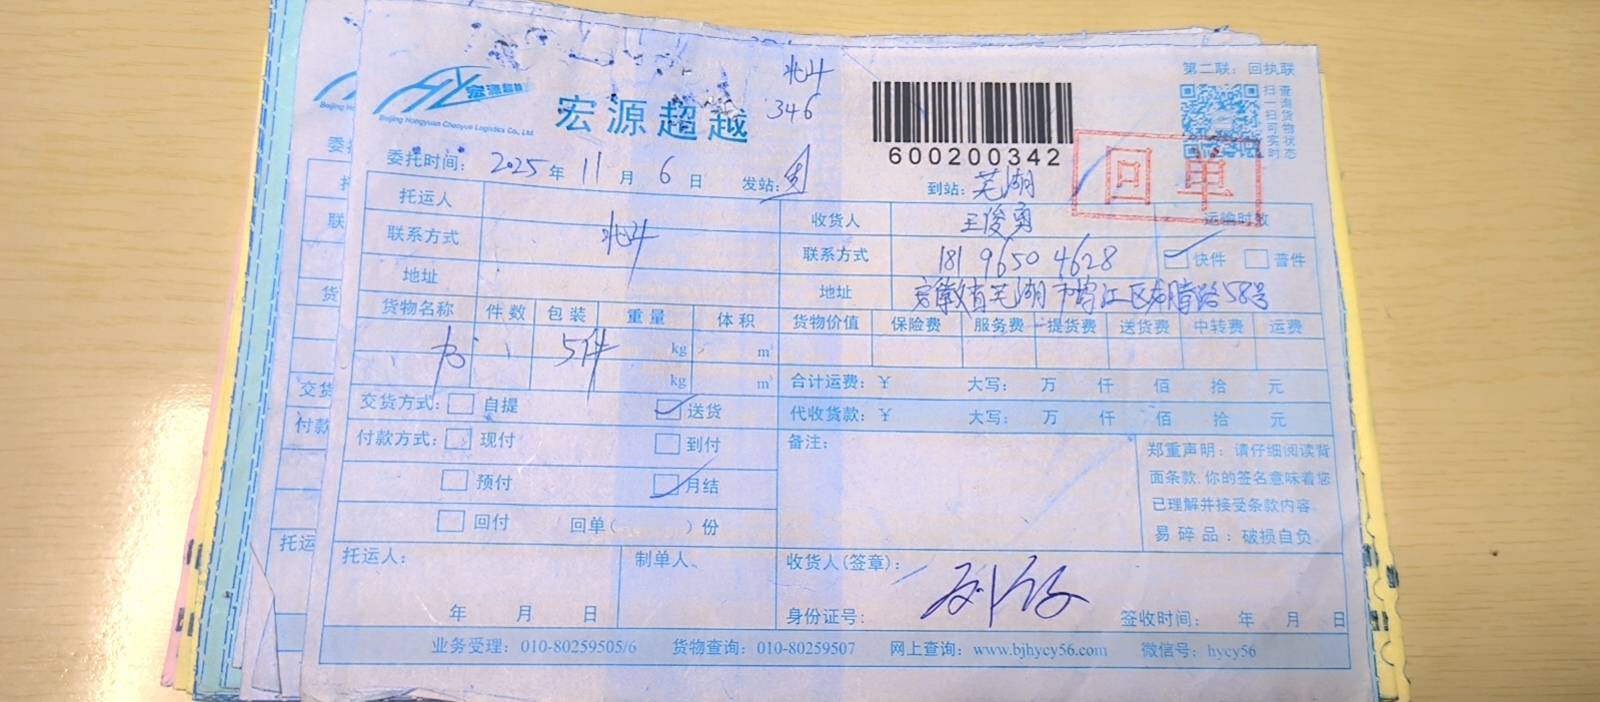 北斗
346
第二联：回执联
扫一扫 查询货物实时状态
宏源超越
Beijing Hongyuan Chaoyue Logistics Co., Ltd.
宏源超越
600200342
回单
委托时间： 2025 年 11 月 6 日 发站：
到站：芜湖
托运人
收货人 王俊勇 运输时效
联系方式 北斗
联系方式 181 9650 4628 快件 普件
地址
地址 安徽省芜湖市鸠江区 路58号
货物名称 件数 包装 重量 体积 货物价值 保险费 服务费 提货费 送货费 中转费 运费
书 5件 kg m³
kg m³ 合计运费：¥ 大写： 万 仟 佰 拾 元
交货方式： 自提 送货 代收货款：¥ 大写： 万 仟 佰 拾 元
付款方式： 现付 到付 备注：
预付 月结
回付 回单( )份
郑重声明：请仔细阅读背
面条款，你的签名意味着您
已理解并接受条款内容
易碎品：破损自负
托运人： 制单人、 收货人(签章)：
年 月 日 身份证号： 签收时间： 年 月 日
业务受理：010-80259505/6 货物查询：010-80259507 网上查询：www.bjhycy56.com 微信号：hycy56